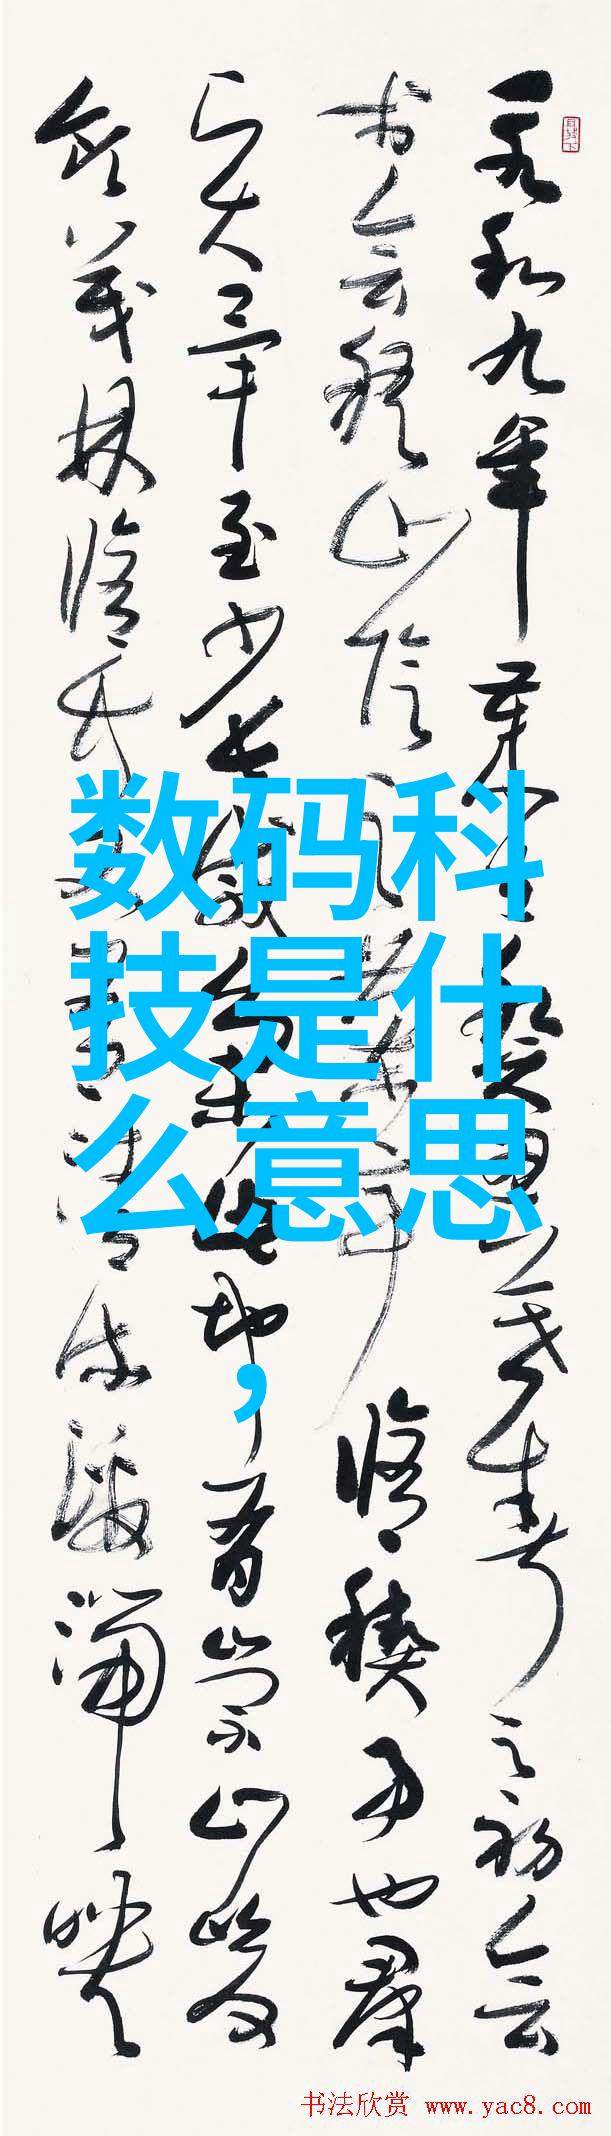 永和九年歲在癸丑暮春之初會
於會稽山陰之蘭亭修禊事也群
賢畢至少長咸集此地有崇山峻
領茂林修竹又有清流激湍映
数码科
技是什
么意思
，
书法欣赏 www.yac8.com